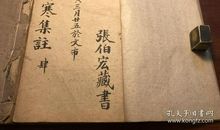 張伯宏藏書
三月廿五於文市
寒集註 肆
孔夫子旧书网